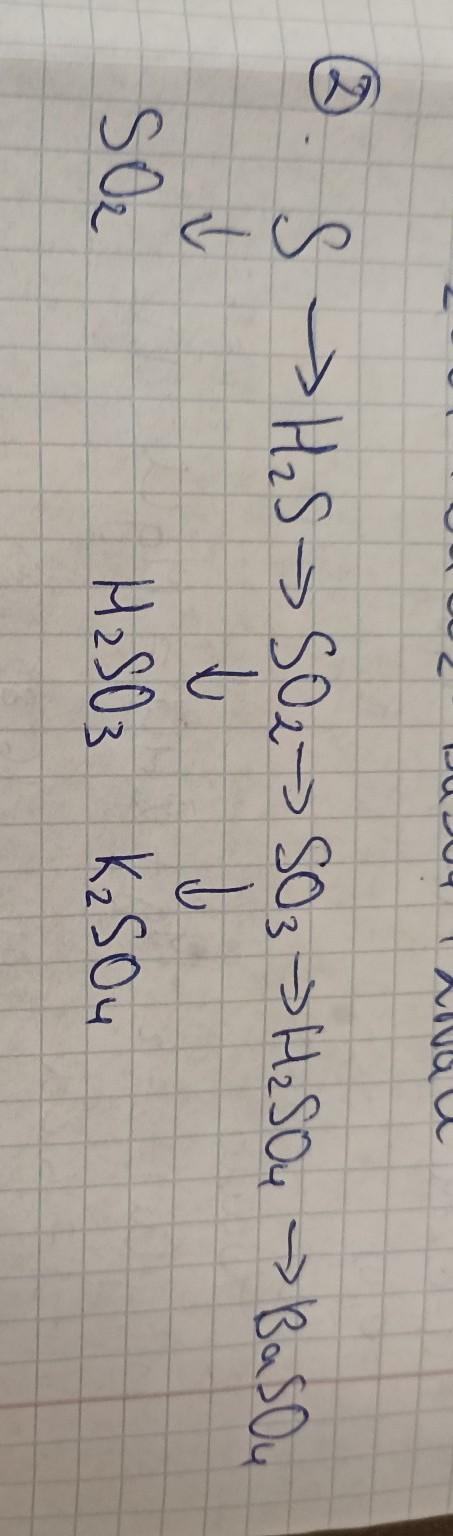 ② . S → H₂S → SO₂ → SO₃ → H₂SO₄ → BaSO₄
↓ ↓ ↓
SO₂ H₂SO₃ K₂SO₄